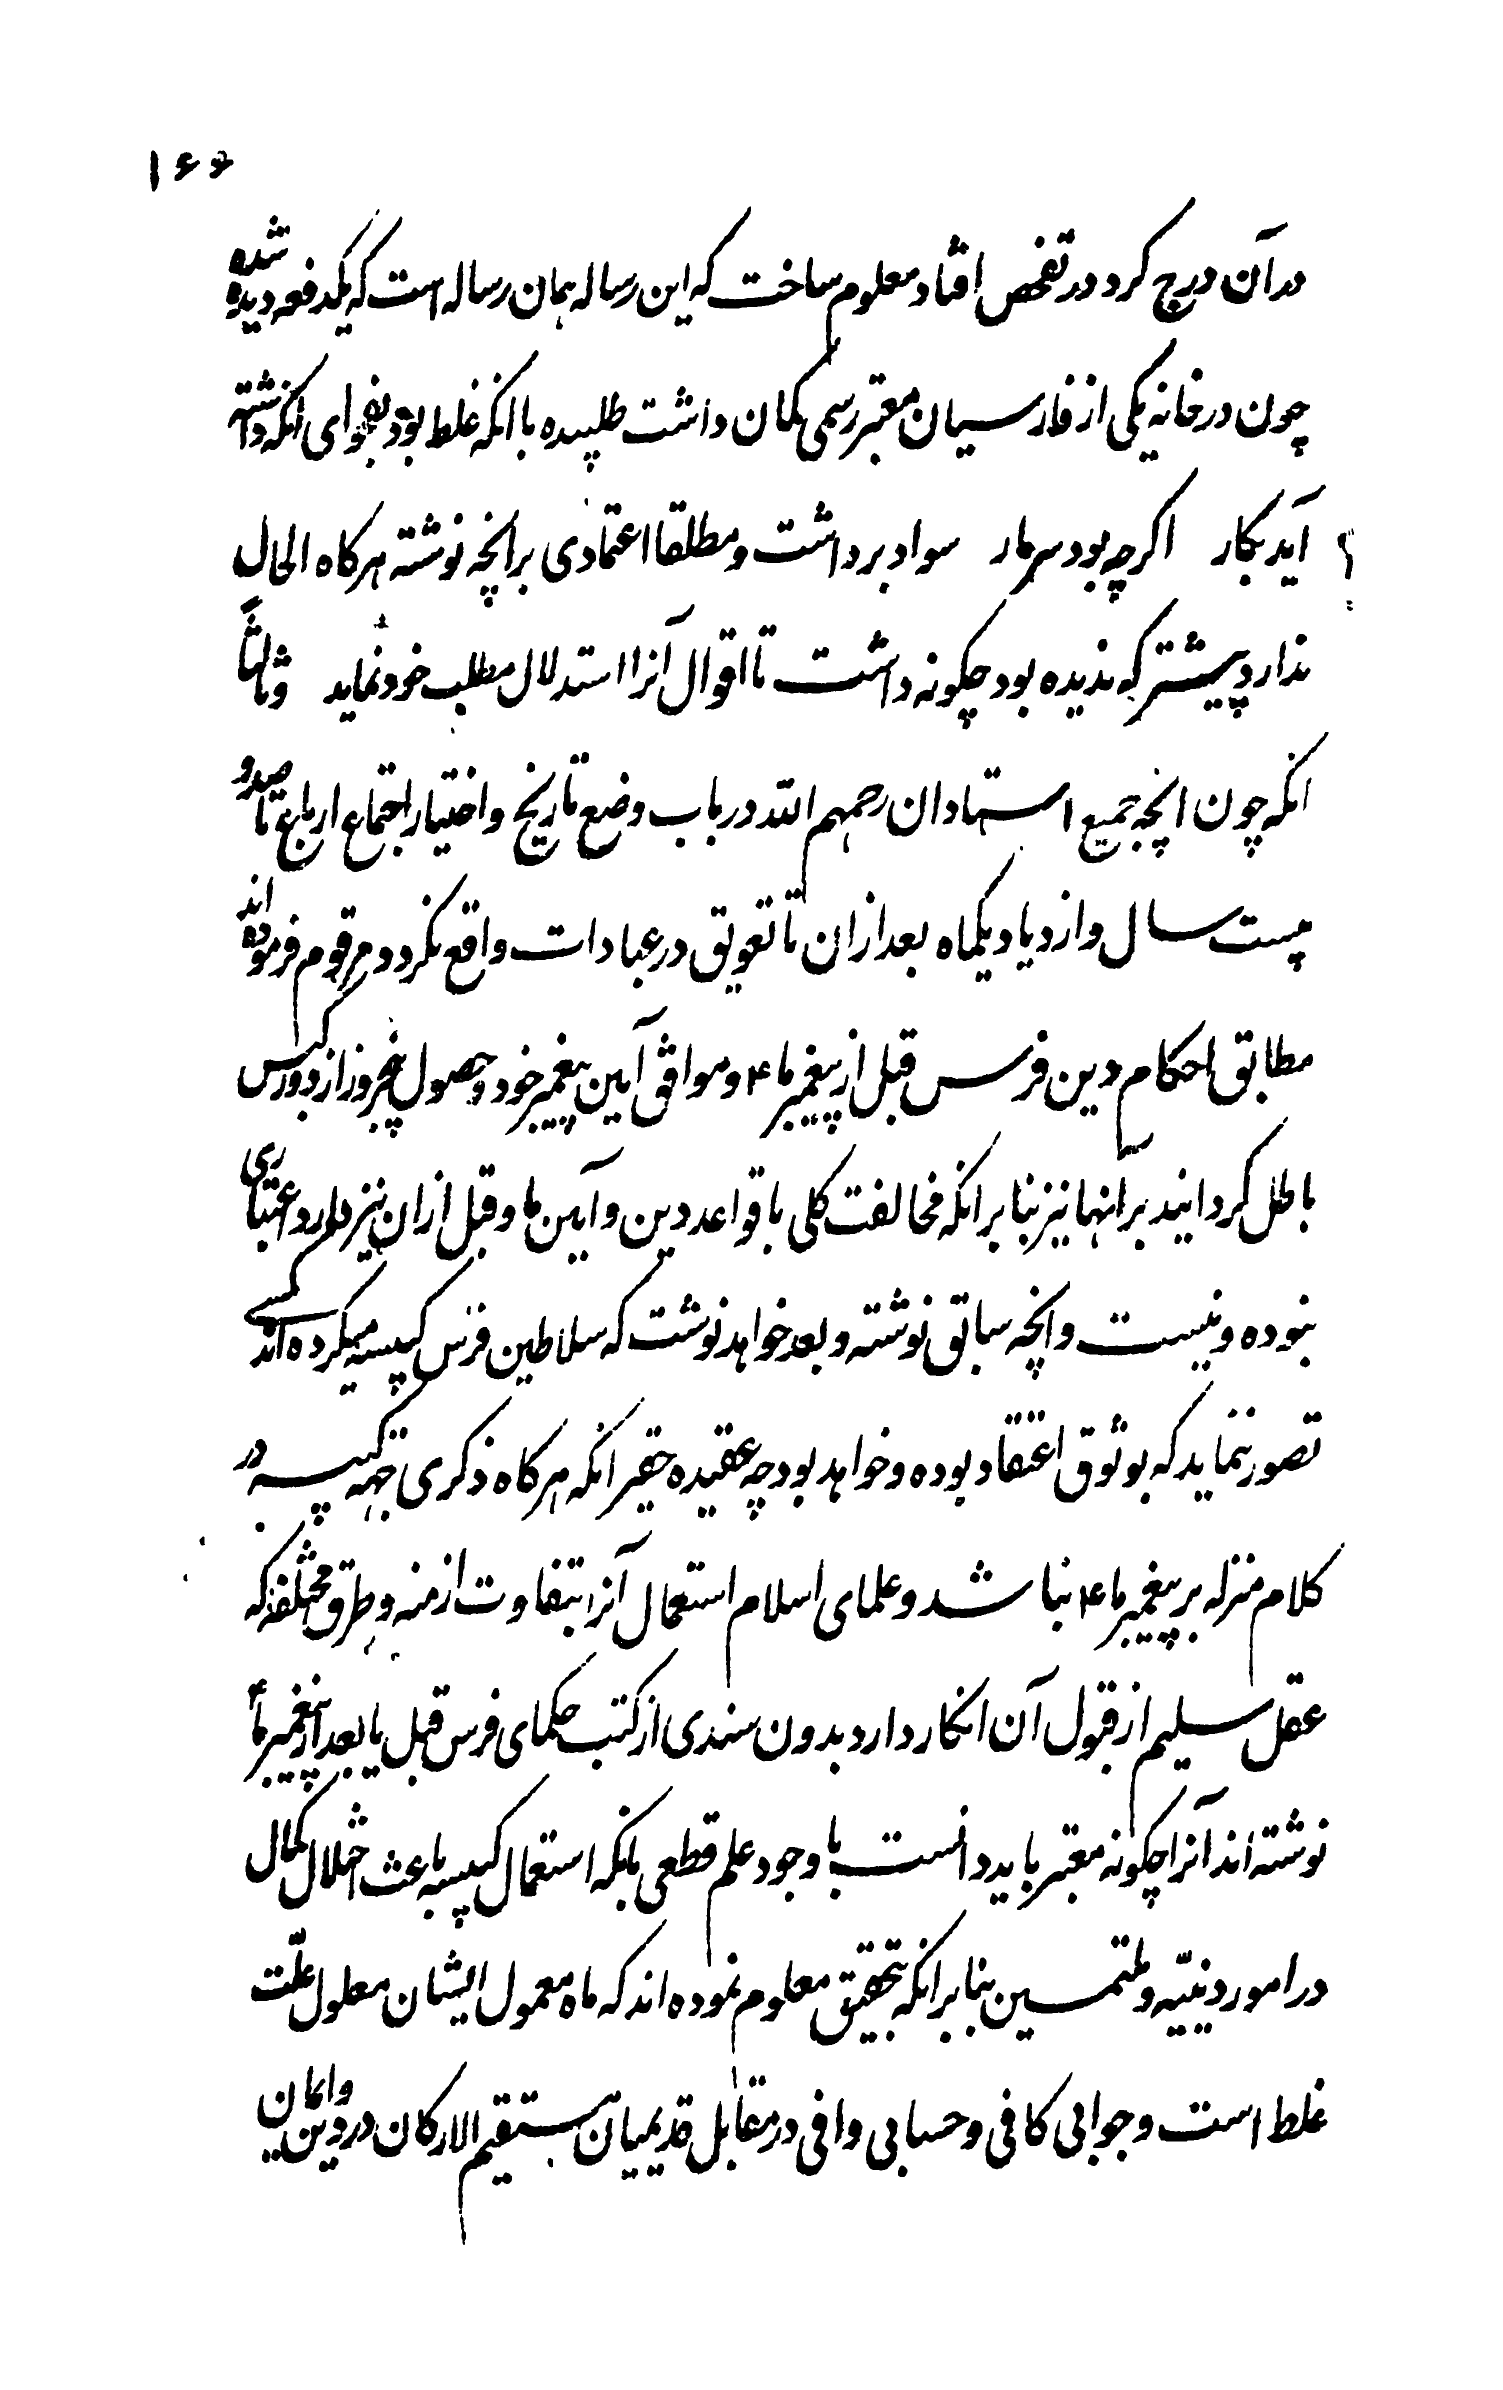 ۱۶۶
در آن درج کرد در تفحص افتاد معلوم ساخت که این رساله همان رساله است که یکدفعه دیده شده
چون در خانه یکی از فارسیان معتبر رسمی کمان داشت طلبیده با انکه غلط بود بفحوای انکه داشته
آید بکار اکرچه بود سرمار سواد برداشت و مطلقا اعتمادی برانچه نوشته هرکاه الحال
ندارد پیشتر که ندیده بود چکونه داشت تا اقوال آنرا استدلال مطلب خود نماید و ثالثاً
انکه چون انچه جمیع استادان رحمهم الله در باب وضع تاریخ و اختیار اجتماع ارباع تا صد و
بیست سال و ازدیاد یکماه بعد ازان تا تعویق در عبادات واقع نکردد مرقوم فرموده اند
مطابق احکام دین فرس قبل از پیغمبر ما ۴ و موافق آیین پیغمبر خود و حصول خبر وز از دورس
باطل کردانیدبر آنها نیز بنابرانکه مخالفت کلی با قواعد دین و آیین ما و قبل ازان نیز دارد اعتباری
نبوده و نیست و انچه سابق نوشته و بعد خواهد نوشت که سلاطین فرس کبیسه میکرده اند کسی
تصور ننماید که بوثوق اعتقاد بوده و خواهد بود چه عقیده حقیر انکه هرکاه ذکری جهته کبیسه در
کلام منزله بر پیغمبر ما ۴ نباشد و علمای اسلام استعمال آنرا بتفاوت ازمنه و طرق مختلفه که
عقل سلیم از قبول آن انکار دارد بدون سندی از کتب حکمای فرس قبل یا بعد از پیغمبر ما ۴
نوشته اند آنرا چکونه معتبر باید دانست با وجود علم قطعی بانکه استعمال کبیسه باعث اختلال کمال
در امور دینیّه و ملتمسین بنابرانکه بتحقیق معلوم نموده اند که ماه معمول ایشان معلول علّت
غلط است و جوابی کافی و حسابی وافی در مقابل قدیمیان مستقیم الارکان در دین و ایمان